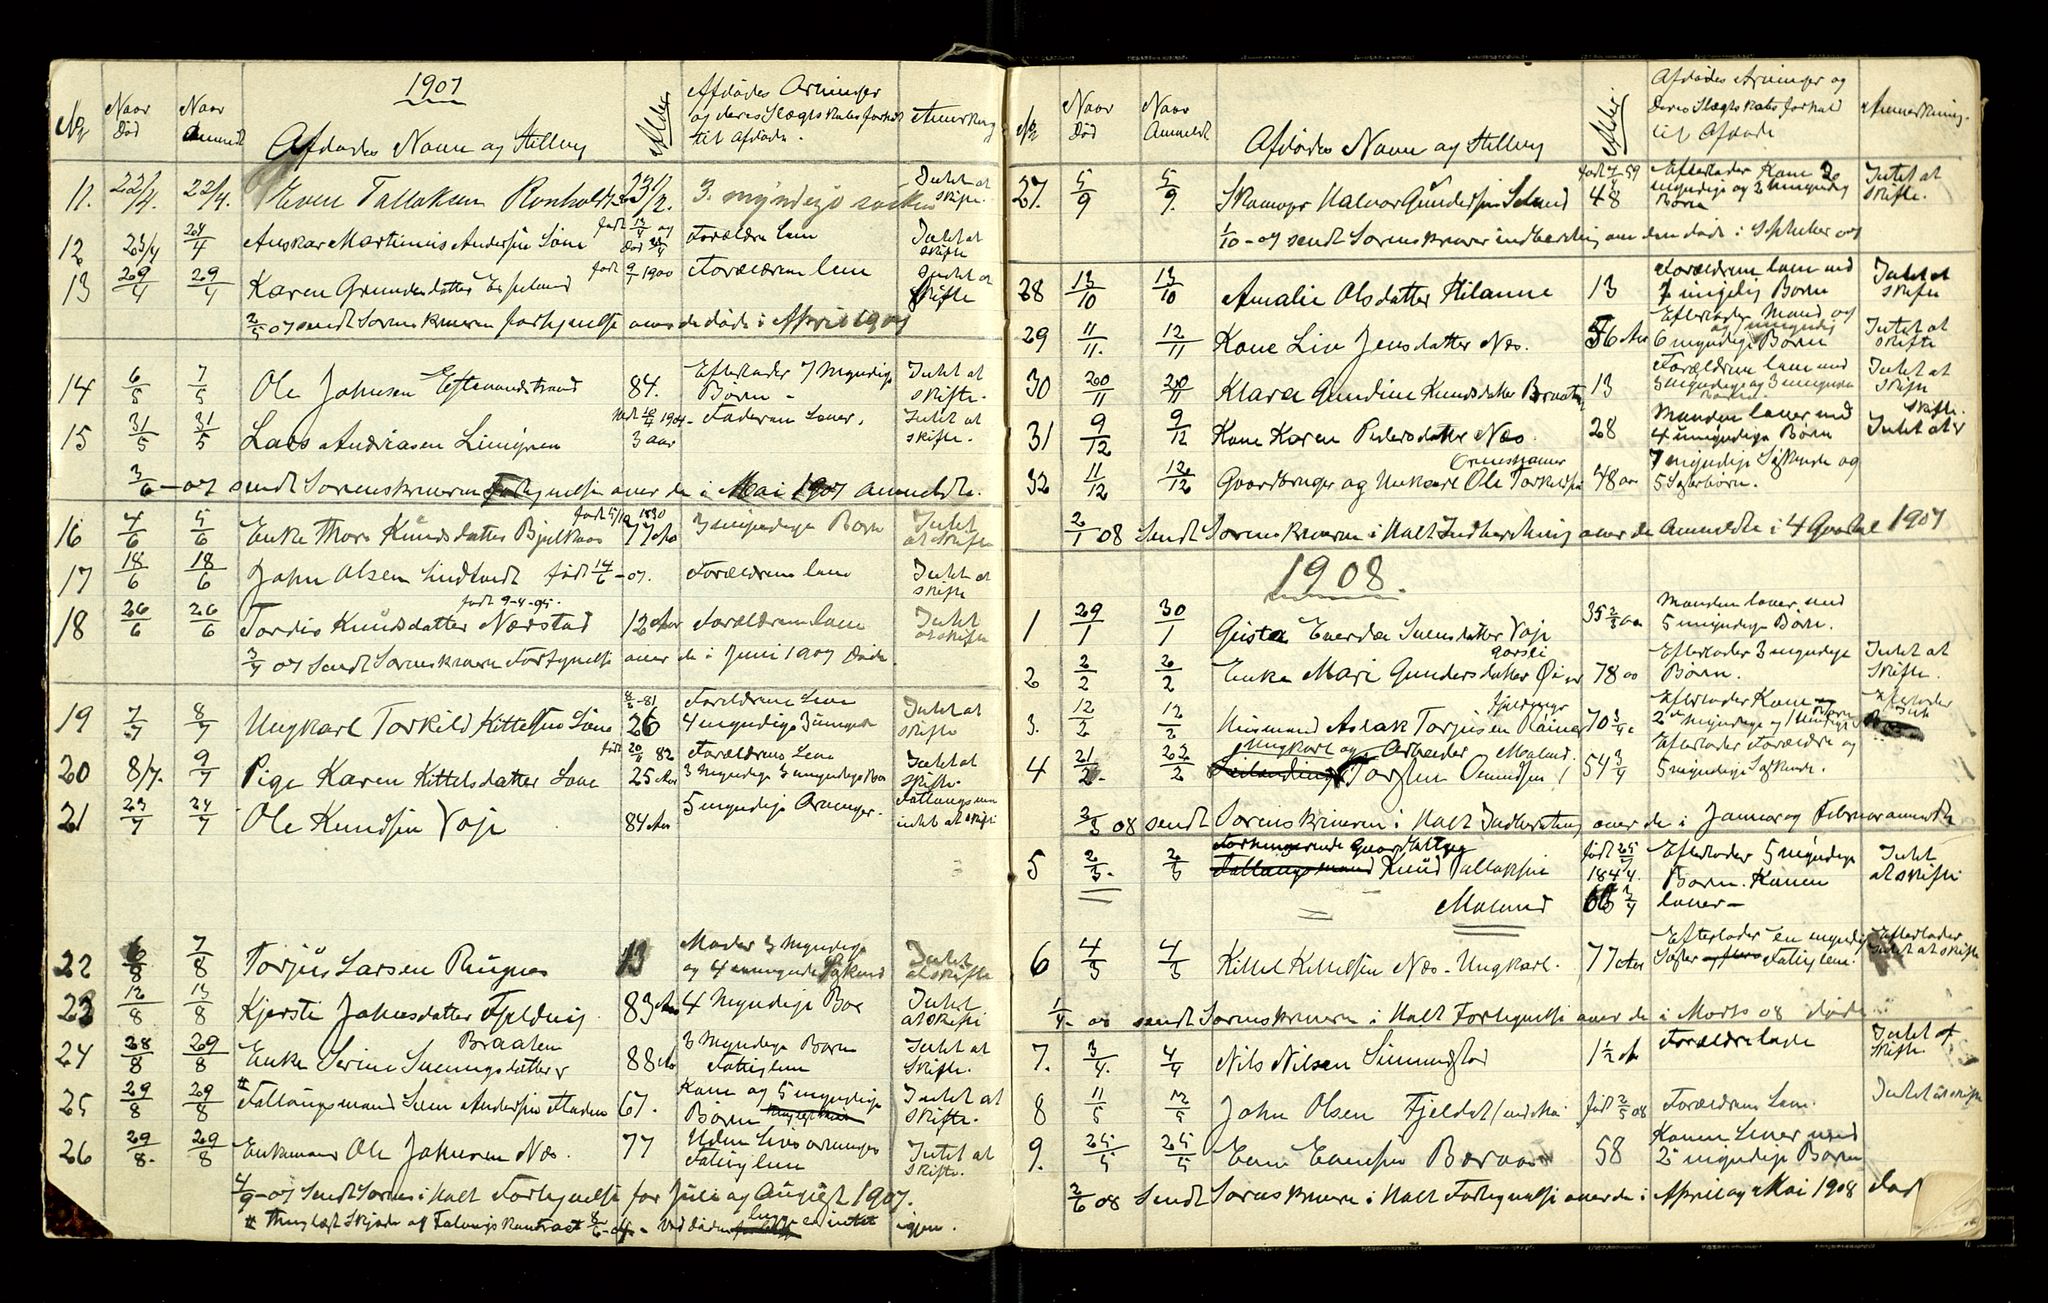 1907
No
Naar Død
Naar Anmeldt
Afdødes Navn og Stilling
Alder
Afdødes Arvinger og deres Slægtskabsforhold til Afdøde.
Anmerkning
11. 22/4. 22/4. Even Tallaksen 3. myndige søsken Intet at skifte.
12 23/4 24/4 Anskar Martinius Andersen født og død Forældre leve Intet at skifte
13 29/4 29/4 Karen Gundersdatter født 1900 Forældrene leve Intet at skifte
2/5 07 sendt Sorenskriveren fortegnelse over de døde i April 1907
14 6/5 7/5 Ole Johnsen 84. Efterlader 7 Myndige Børn - Intet at skifte.
15 31/5 31/5 Lars Andreasen 1904 3 aar Faderen Lever. Intet at skifte.
3/6 - 07 sendt Sorenskriveren Fortegnelse over de i Mai 1907 anmeldte.
16 4/6 5/6 Enke Thore Knudsdatter født 5/10 1830 77 Aar 3 myndige Børn Intet at skifte
17 18/6 18/6 John Olsen født 14/6 - 07. Forældrene leve Intet at skifte
18 26/6 26/6 Tordis Knudsdatter Nedstad født 9-4-95. 12 Aar Forældrene leve Intet at skifte
3/7 07 Sendt Sorenskriveren Fortegnelse over de i Juni 1907 døde.
19 7/7 8/7 Ungkarl Torkild Kittelsen 8/2-81 26 Forældrene Leve 4 myndige 3 umyndige Intet at skifte
20 8/7. 9/7 Pige Karen Kittelsdatter født 82 25 Aar Forældrene Leve 3 Myndige 3 umyndige Intet at skifte.
21 23/7 24/7 Ole Knudsen Voje 84 Aar 5 myndige Arvinger. intet at skifte
22 6/8 7/8 Torjus Larsen Rugnes 13 Moder 3 Myndige og 4 umyndige Søskend Intet at skifte
23 12/8 13/8 Kjersti Johnsdatter Fjeldvig 83 Aar 4 Myndige Børn Intet at skifte
24 28/8 29/8 Enke Serine Svenungsdatter Braaten 88 Aar 3 Myndige Børn Fatiglem Intet at skifte.
25 29/8 29/8 # Sven Andersen 67. Kone og 5 myndige Børn Intet at skifte.
26 29/8. 29/8 Enkemand Ole Johnsen Næs. 77 Uden Livsarvinger Fatiglem Intet at skifte.
4/9 - 07 Sendt Sorens i Holt Fortegnelse for Juli og August 1907.
# Thinglæst Skjøde igjen.
No
Naar Død
Naar Anmeldt
Afdødes Navn og Stilling
Alder
Afdødes Arvinger og Deres Slægtskabsforhold til Afdøde
Anmerkning.
27. 5/9 5/9. Halvor Gundersen født 59 48 Efterlader Kone 2 myndige og 2 umyndig Børn Intet at skifte.
1/10 - 07 sendt Sorenskriver indberetning om den døde i September 07
28 13/10 13/10 Amalie Olsdatter 13 Forældrene leve med 7 umyndig Børn Intet at skifte
29 11/11. 12/11 Kone Live Jensdatter Næs. 56 Aar Efterlader Mand og 6 myndige og umyndig Børn Intet at skifte
30 20/11 20/11 Klara Gundine Knudsdatter Braaten 13 Forældrene leve med 3 myndige og 3 umyndige Børn Intet at skifte
31 9/12 9/12 Kone Karen Pedersdatter Næs. 28 Manden lever med 4 umyndige Børn Intet at skifte.
32 11/12 12/12 Gaardbruger og Ungkarl Ole Torkildsen 48 aar 7 myndige Søskende og 5 Søsterbørn.
2/1 08 Sendt Sorenskriveren i Holt Indberetning over de Anmeldte i 4 Qvartal 1907
1908.
1 29/1 30/1 Gusta Everda Svensdatter Voje 35 aar Manden lever med 5 umyndige Børn.
2 2/2 2/2 Enke Mari Gundersdatter 78 aar Efterlader 3 myndige Børn. Intet at skifte.
3. 12/2 12/2 Husmand Aslak Torjusen 70 3/4 Efterlader Kone 2 myndige og 1 Umyndig Børn
4 21/2. 22/2 Ungkarl og Arbeider Torsten Omundsen Moland 54 3/4 Efterlader Forældre og 5 myndige Søskende.
3/3 08 sendt Sorenskriveren i Holt Indberetning over de i Januar og Februar anmeldte
5 2/3. 2/3 Forhenværende Knud Tallaksen født 25 1844. Efterlader 5 myndige Børn. Konen lever - Intet at skifte
Moland
6 4/3 4/3 Kittel Kittelsen Næs - Ungkarl. 77 Aar Efterlader en myndig Søster Fatiglem. Efterlader Intet at skifte
1/4 - 08 sendt Sorenskriveren i Holt Fortegnelse over de i Marts 08 døde
7. 3/4. 4/4 Nils Nilsen Simmonstad 1 1/2 Aar Forældre leve Intet at skifte.
8 11/5 12/5 John Olsen født 2/5 08 Forældrene Leve. Intet at skifte
9. 25/5 25/5 Even Evensen 58 Konen Lever med 2 myndige Børn
2/6 08 Sendt Sorenskriveren i Holt Fortegnelse over de i April og Mai 1908 død